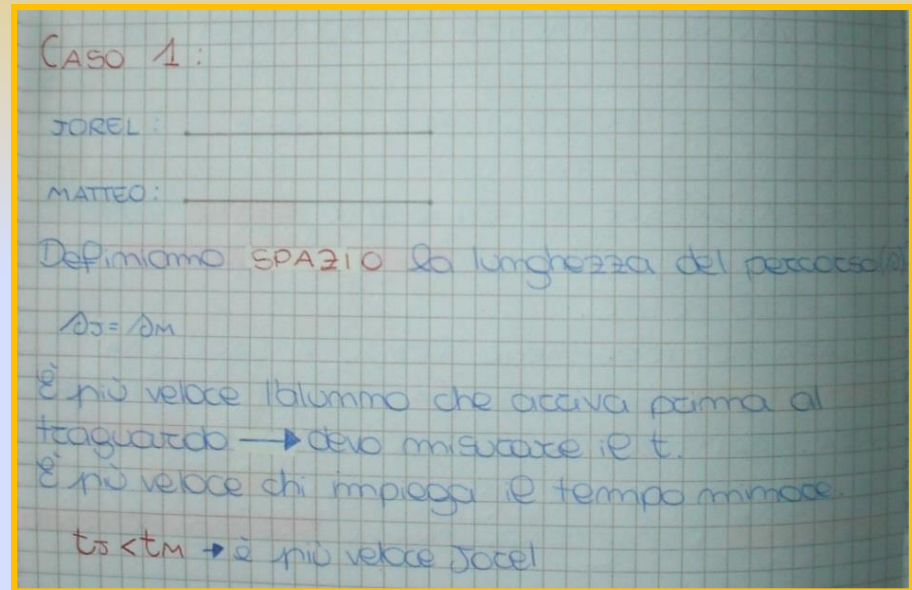 CASO 1:
JOREL:
MATTEO:
Definiamo SPAZIO la lunghezza del percorso(s)
sJ = sM
È più veloce l'alunno che arriva prima al
traguardo → devo misurare il t.
È più veloce chi impiega il tempo minore.
tJ < tM → è più veloce Jorel